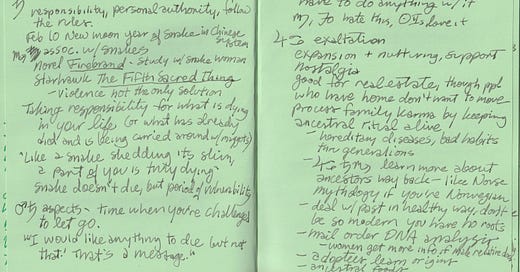 ♄ responsibility, personal authority, follow
the rules.
Feb 10 New moon year of snake in Chinese
system
My assoc. w/ snakes
novel Firebrand - study w/ snake woman
Starhawk The Fifth Sacred Thing
- violence not the only solution
Taking responsibility for what is dying
in your life (or what has already
died and is being carried around w/
"Like a snake shedding its skin,
a part of you is truly dying"
snake doesn't die, but period of vulnerability
♂♄ aspects - time when you're challenged
to let go.
"I would like anything to die but not
that! That's a message."
have to do anything w/ it
to hate this,
♃♋ exaltation
expansion + nutturing, support
nostalgia
good for real estate, though ppl
who have home don't want to move
process family karma by keeping
ancestral ritual alive
- hereditary diseases, bad habits
thru generations
- learn more about
ancestors way back - like Norse
mythology if you're Norwegian
- deal w/ past in healthy way, don't
be so modern you have no roots
- mail order DNA analysis
- women get more info if male relative
- adoptees learn origins
- ancestral foods